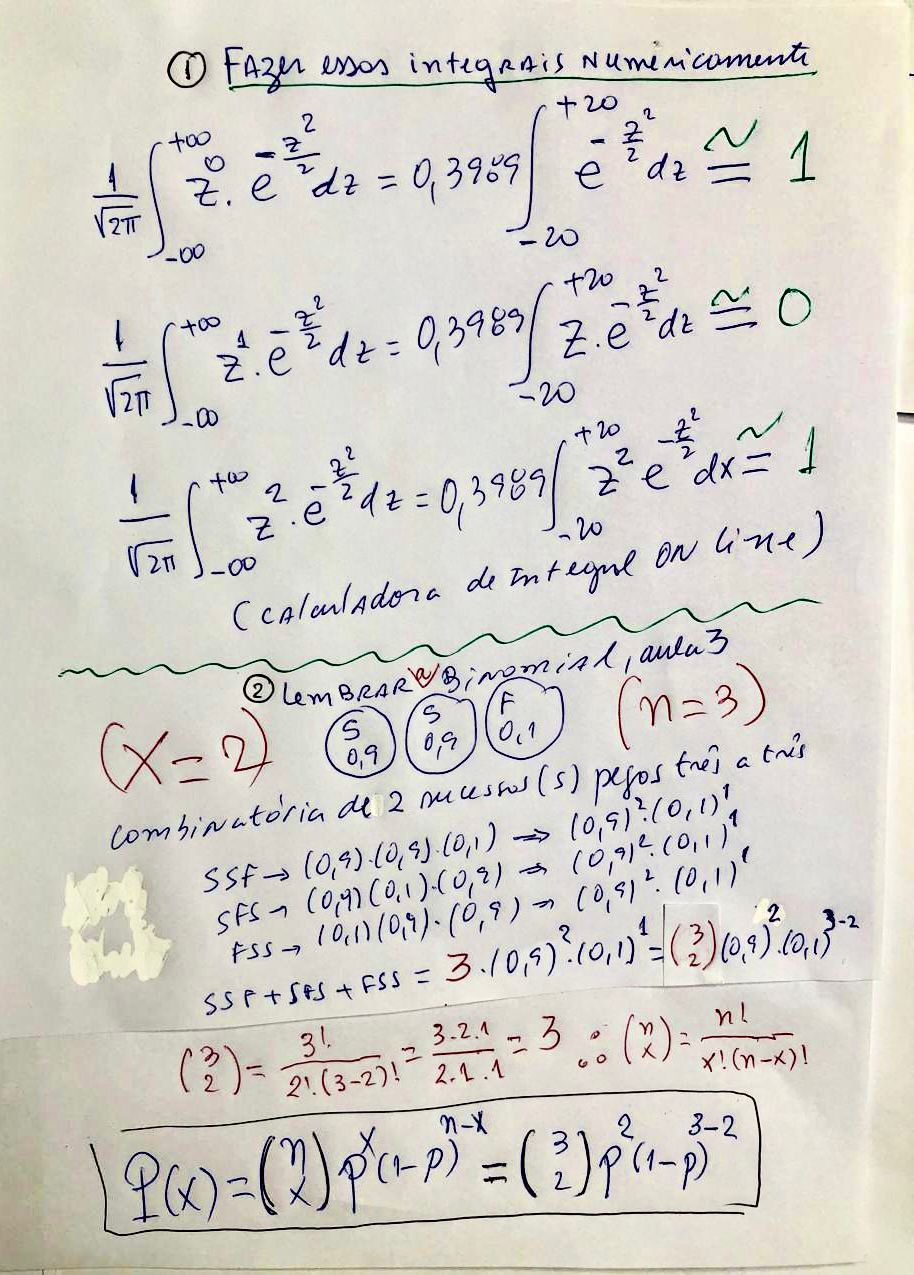 ① Fazer essas integrais numericamente
1/√2π ∫_{-∞}^{+∞} z⁰. e^{-z²/2} dz = 0,3989 ∫_{-20}^{+20} e^{-z²/2} dz ≅ 1
1/√2π ∫_{-∞}^{+∞} z¹. e^{-z²/2} dz = 0,3989 ∫_{-20}^{+20} z. e^{-z²/2} dz ≅ 0
1/√2π ∫_{-∞}^{+∞} z². e^{-z²/2} dz = 0,3989 ∫_{-20}^{+20} z² e^{-z²/2} dx ≅ 1
(Calculadora de Integral ON line)
② Lembrar a Binomial, aula 3
(X=2) S 0,9 S 0,9 F 0,1 (n=3)
Combinatória de 2 sucessos (s) pegos três a três
SSF → (0,9).(0,9).(0,1) ⇒ (0,9)².(0,1)¹
SFS → (0,9)(0,1).(0,9) ⇒ (0,9)².(0,1)¹
FSS → (0,1)(0,9).(0,9) → (0,9)².(0,1)¹
SSF + SFS + FSS = 3.(0,9)².(0,1)¹ = (3 2)(0,9)².(0,1)^{3-2}
(3 2) = 3!/2!(3-2)! = 3.2.1/2.1.1 = 3 ∴ (n x) = n!/x!(n-x)!
P(x) = (n x) p^x (1-p)^{n-x} = (3 2) p² (1-p)^{3-2}